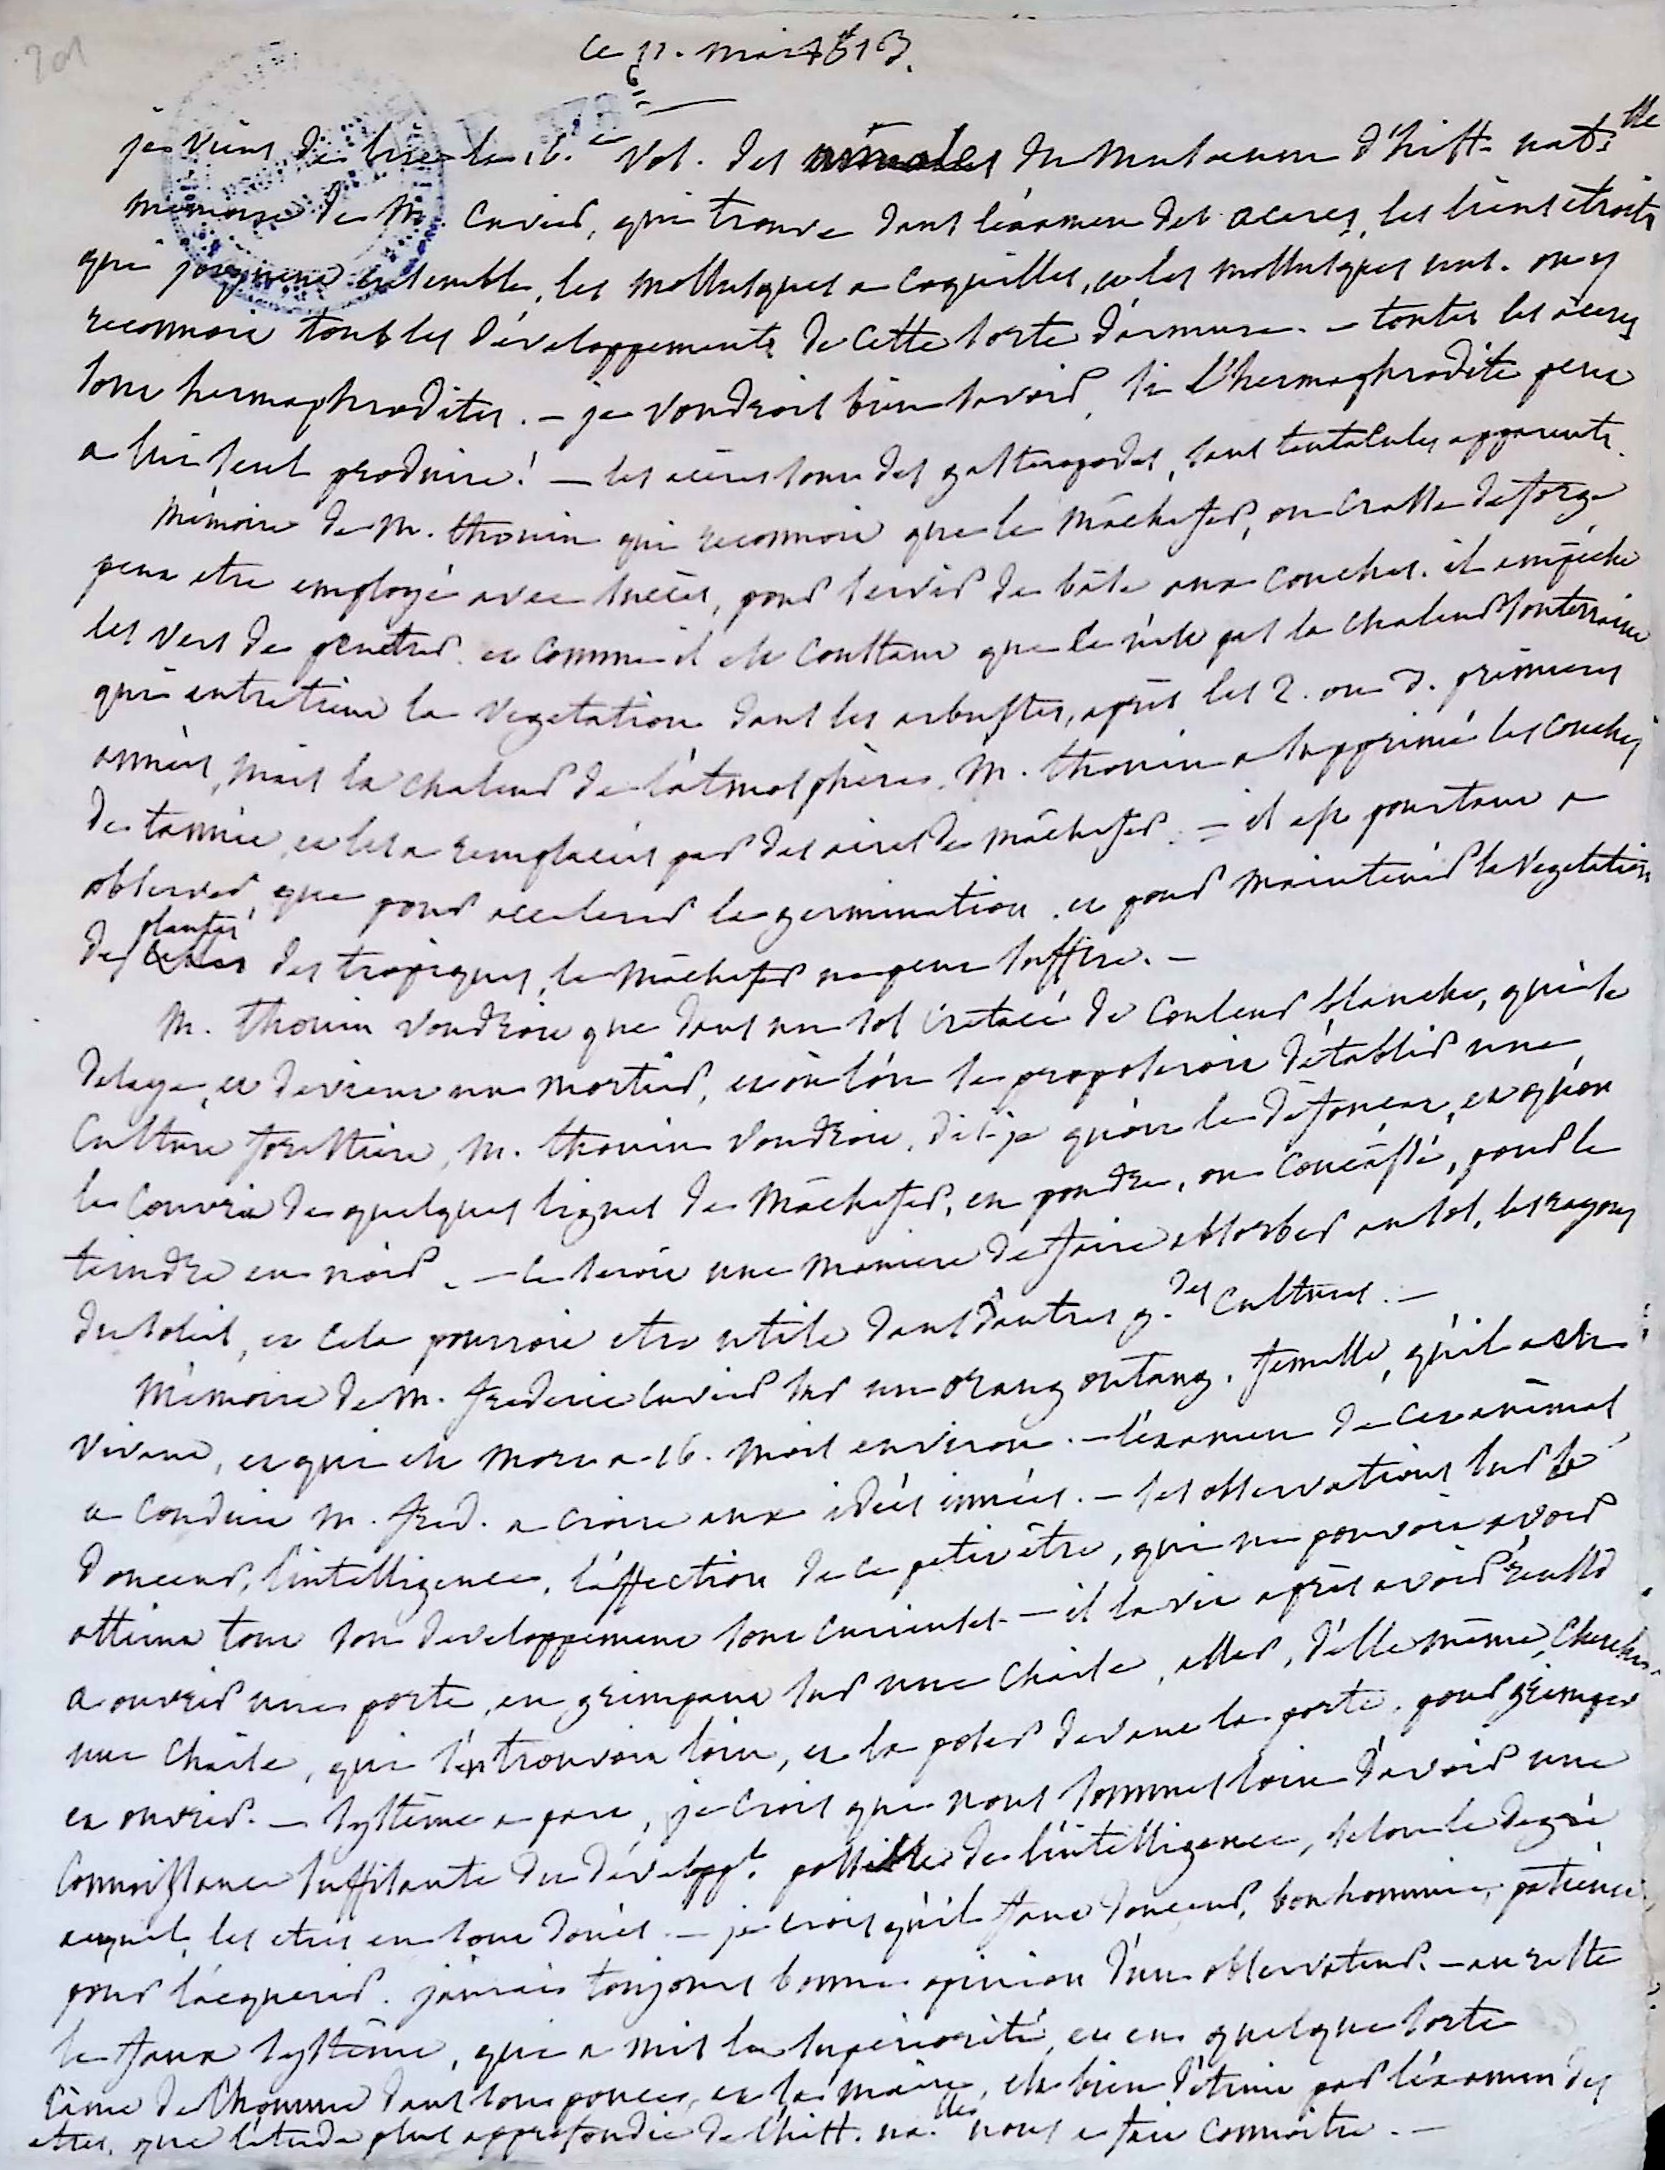 ce 11. mai 1813.
je viens de lire le 16.e vol. des annales du museum d'hist. nat.lle
memoire de M. Cuvier, qui trouve dans l'éxamen des aceres, les liens étroits
qui joignent ensemble, les mollusques a coquilles, et les mollusques nus. on y
reconnoit tous les développements de cette sorte d'armure. - toutes les acères
sont hermaphrodites. - je voudrois bien savoir, si l'hermaphrodite peut
a lui seul produire! - les acères sont des gasteropodes, sans tentacules apparents.
Mémoire de M. thouin qui reconnoit que le mâchefer, ou crasse de forge
peut etre employé avec succès, pour servir de bâse aux couches. il empêche
les vers de penetrer. et comme il est constant que ce n'est pas la chaleur souterraine
qui entretient la vegetation dans les arbustes, après les 2. ou 3. premieres
années, mais la chaleur de l'atmosphère, M. thouin a supprimé les couches
de tannée, et les a remplacées par des aires de mâchefer. - il est pourtant a
observer, que pour accelerer la germination, et pour maintenir la vegetation
des plantes des tropiques, le mâchefer ne peut suffire. -
M. thouin voudroit que dans un sol crétacé de couleur blanche, qui se
delaye, et devient un mortier, et où l'on se proposeroit d'établir une
culture forestiere, M. thouin voudroit, dis-je qu'on le défonçat, et qu'on
le couvrit de quelques lignes de mâchefer, en poudre, ou concassé, pour le
teindre en noir. - ce seroit une maniere de faire absorber au sol, les rayons
du soleil, et cela pourroit etre utile dans d'autres g.des cultures. -
Mémoire de M. frederic cuvier sur un orang outang, femelle, qu'il a vu
vivant, et qui est mort a 16. mois environ. - l'éxamen de cet animal
a conduit M. fred. a croire aux idées innées. - ses observations sur la
douceur, l'intelligence, l'affection de ce petit être, qui ne pouvoit avoir
atteint tout son developpement sont curieuses - il la vit après avoir réussi
a ouvrir une porte, en grimpant sur une chaise, aller, d'elle même, chercher
une chaise, qui s'en trouvoit loin, et la poser devant la porte, pour grimper
et ouvrir. - systême a part, je crois que nous sommes loin d'avoir une
connoissance suffisante du développ.t possible de l'intelligence, selon le degré
auquel, les etres en sont doués. - je crois qu'il faut douceur, bonhommie, patience
pour l'acquerir. j'aurais toujours bonne opinion d'un observateur. - au reste
le faux systême, qui a mis la supériorité, et en quelque sorte
l'âme de l'homme dans son pouce, et la main, est bien détruit par l'éxamen des
etres, que l'étude plus approfondie de l'hist. na.lle nous a fait connoitre. -